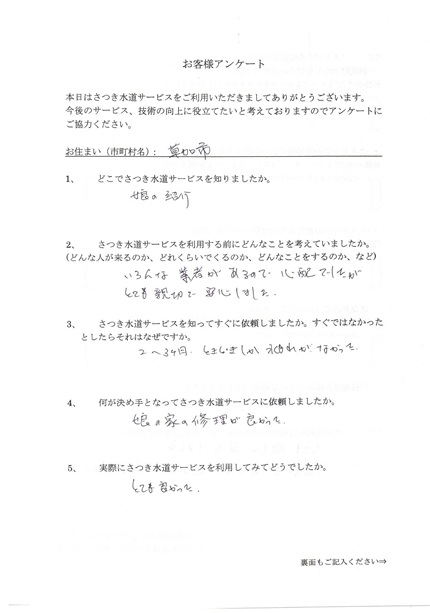 お客様アンケート
本日はさつき水道サービスをご利用いただきましてありがとうございます。
今後のサービス、技術の向上に役立てたいと考えておりますのでアンケートに
ご協力ください。
お住まい（市町村名）： 草加市
1、 どこでさつき水道サービスを知りましたか。
娘の紹介
2、 さつき水道サービスを利用する前にどんなことを考えていましたか。
（どんな人が来るのか、どれくらいでくるのか、どんなことをするのか、など）
いろんな業者があるので心配でしたが
とても親切で安心しました。
3、 さつき水道サービスを知ってすぐに依頼しましたか。すぐではなかった
としたらそれはなぜですか。
2〜3ヶ月. ときどきしか水もれがなかった.
4、 何が決め手となってさつき水道サービスに依頼しましたか。
娘の家の修理が良かった.
5、 実際にさつき水道サービスを利用してみてどうでしたか。
とても良かった.
裏面もご記入ください⇒